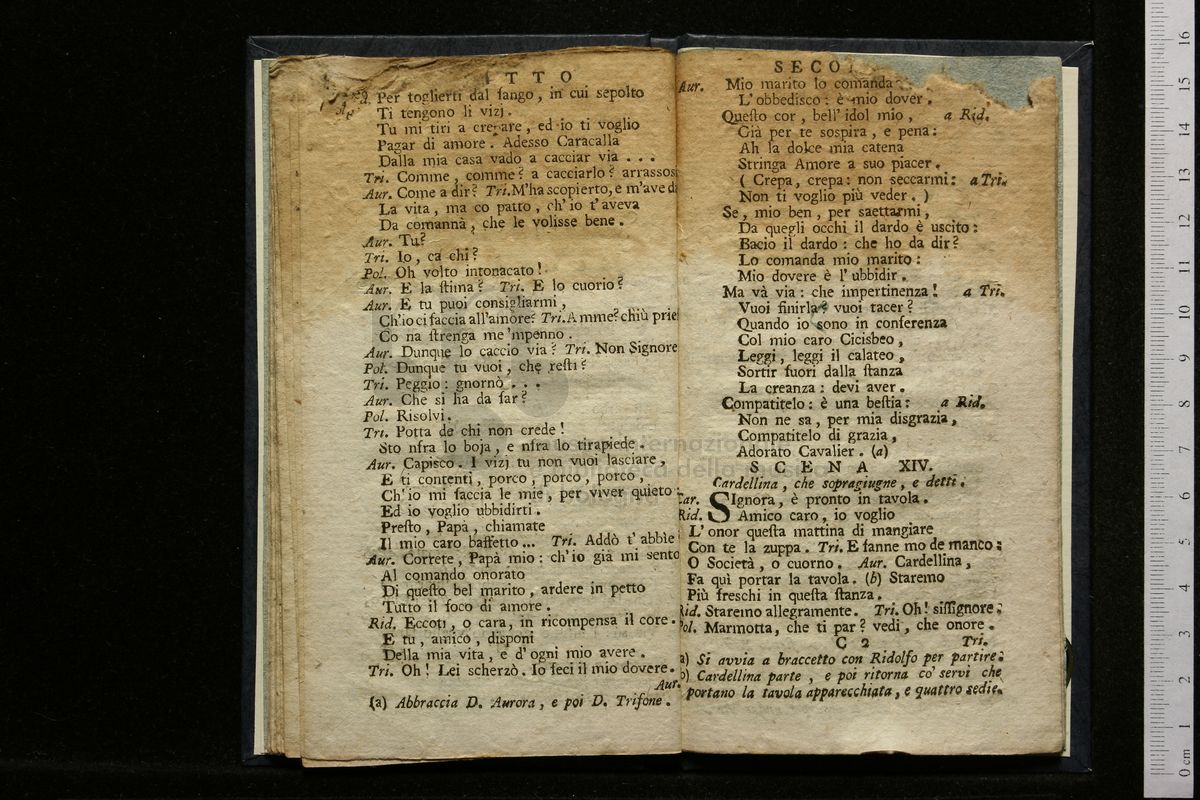 ATTO
Per toglierti dal fango, in cui sepolto
Ti tengono li vizj.
Tu mi tiri a crepare, ed io ti voglio
Pagar di amore. Adesso Caracalla
Dalla mia casa vado a cacciar via . . .
Tri. Comme, comme? a cacciarlo? arrassos
Aur. Come a dir? Tri. M'ha scopierto, e m'ave da
La vita, ma co patto, ch'io t'aveva
Da comannà, che le volisse bene.
Aur. Tu?
Tri. Io, ca chi?
Pol. Oh volto intonacato!
Aur. E la ſtima? Tri. E lo cuorio?
Aur. E tu puoi consigliarmi,
Ch'io ci faccia all'amore? Tri. A mme? chiù prie
Co na ſtrenga me 'mpenno.
Aur. Dunque lo caccio via? Tri. Non Signore
Pol. Dunque tu vuoi, che reſti?
Tri. Peggio: gnornò . . .
Aur. Che si ha da far?
Pol. Risolvi.
Tri. Potta de chi non crede!
Sto nfra lo boja, e nfra lo tirapiede.
Aur. Capisco. I vizj tu non vuoi lasciare,
E ti contenti, porco, porco, porco,
Ch'io mi faccia le mie, per viver quieto:
Ed io voglio ubbidirti.
Preſto, Papà, chiamate
Il mio caro baffetto... Tri. Addò t'abbie
Aur. Correte, Papà mio: ch'io già mi sento
Al comando onorato
Di queſto bel marito, ardere in petto
Tutto il foco di amore.
Rid. Eccoti, o cara, in ricompensa il core.
E tu, amico, disponi
Della mia vita, e d'ogni mio avere.
Tri. Oh! Lei scherzò. Io feci il mio dovere.
Aur.
(a) Abbraccia D. Aurora, e poi D. Trifone.
SECO
Aur. Mio marito lo comanda
L'obbedisco: è mio dover.
Queſto cor, bell'idol mio, a Rid.
Già per te sospira, e pena:
Ah la dolce mia catena
Stringa Amore a suo piacer.
( Crepa, crepa: non seccarmi: a Tri.
Non ti voglio più veder. )
Se, mio ben, per saettarmi,
Da quegli occhi il dardo è uscito:
Bacio il dardo: che ho da dir?
Lo comanda mio marito:
Mio dovere è l'ubbidir.
Ma và via: che impertinenza! a Tri.
Vuoi finirla? vuoi tacer?
Quando io sono in conferenza
Col mio caro Cicisbeo,
Leggi, leggi il calateo,
Sortir fuori dalla ſtanza
La creanza: devi aver.
Compatitelo: è una beſtia: a Rid.
Non ne sa, per mia disgrazia,
Compatitelo di grazia,
Adorato Cavalier. (a)
SCENA XIV.
Cardellina, che sopragiugne, e detti.
Car. SIgnora, è pronto in tavola.
Rid. Amico caro, io voglio
L'onor queſta mattina di mangiare
Con te la zuppa. Tri. E fanne mo de manco:
O Società, o cuorno. Aur. Cardellina,
Fa quì portar la tavola. (b) Staremo
Più freschi in queſta ſtanza.
Rid. Staremo allegramente. Tri. Oh! siſſignore:
Pol. Marmotta, che ti par? vedi, che onore.
C 2 Tri.
a) Si avvia a braccetto con Ridolfo per partire:
b) Cardellina parte, e poi ritorna co' servi che
portano la tavola apparecchiata, e quattro sedie.